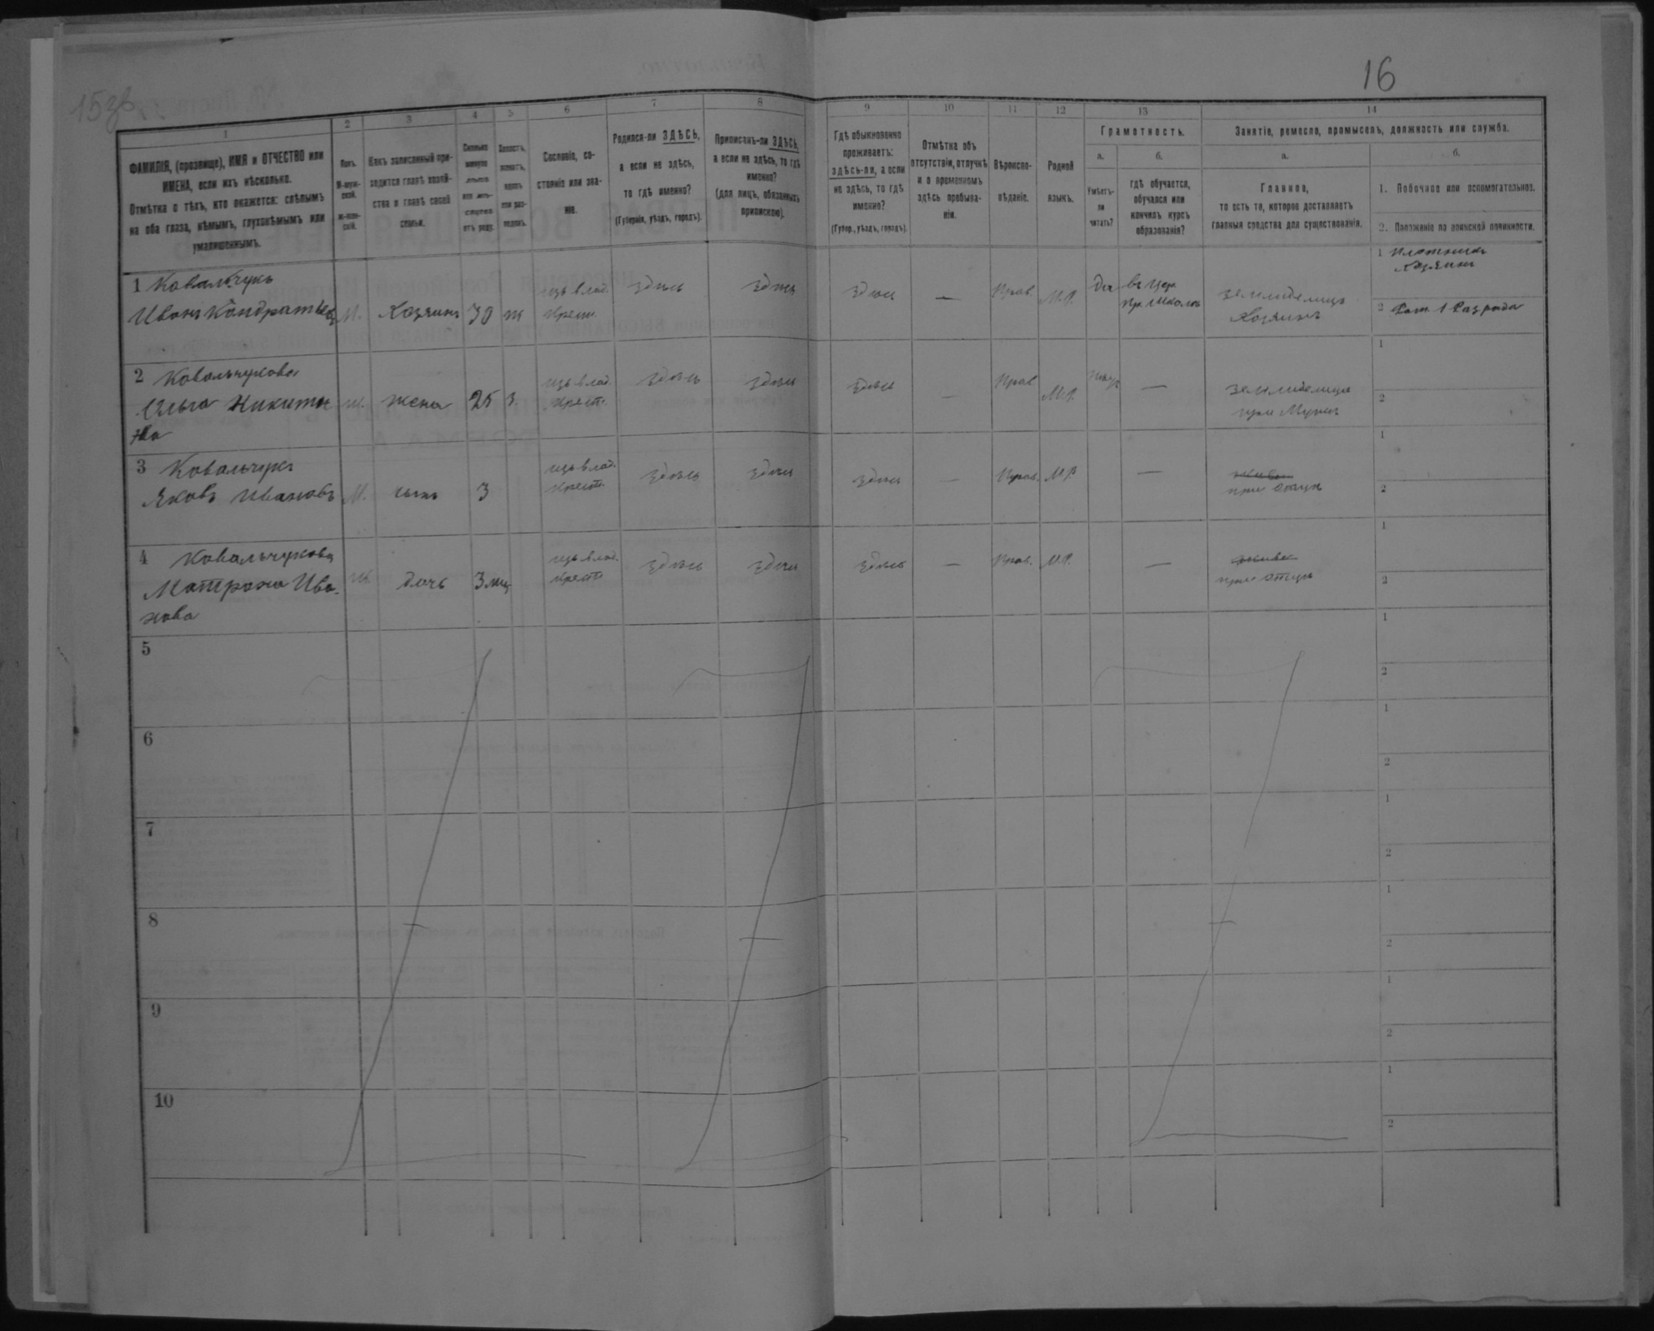 16
1 2 3 4 5 6 7 8 9 10 11 12 13 14
ФАМИЛІЯ, (прозвище), ИМЯ и ОТЧЕСТВО или
ИМЕНА, если ихъ нѣсколько.
Отмѣтка о тѣхъ, кто окажется: слѣпымъ
на оба глаза, нѣмымъ, глухонѣмымъ или
умалишеннымъ.
Полъ.
М-муж-
ской.
Ж-жен-
скій.
Какъ записанный при-
ходится главѣ хозяй-
ства и главѣ своей
семьи.
Сколько
минуло
лѣтъ
или мѣ-
сяцевъ
отъ роду.
Сословіе, со-
стояніе или зва-
ніе.
Родился-ли ЗДѢСЬ,
а если не здѣсь,
то гдѣ именно?
(Губернія, уѣздъ, городъ).
Приписанъ-ли ЗДѢСЬ,
а если не здѣсь, то гдѣ
именно?
(для лицъ, обязанныхъ
припискою).
Гдѣ обыкновенно
проживаетъ:
здѣсь-ли, а если
не здѣсь, то гдѣ
именно?
(Губер., уѣздъ, городъ).
Отмѣтка объ
отсутствіи, отлучкѣ
и о временномъ
здѣсь пребыва-
ніи.
Вѣроиспо-
вѣданіе.
Родной
языкъ.
Грамотность.
а.
Умѣетъ-
ли
читать?
б.
гдѣ обучается,
обучался или
кончилъ курсъ
образованія?
Занятіе, ремесло, промыселъ, должность или служба.
а.
Главное,
то есть то, которое доставляетъ
главныя средства для существованія.
б.
1. Побочное или вспомогательное.
2. Положеніе по воинской повинности.
1 Ковальчукъ
Иванъ Кондратьев
М. Хозяинъ 30 ж
изъ влад.
Крест
здѣсь здѣсь здѣсь — Прав. М.Р. да
въ Цер.
Пр. Школѣ
земледѣлецъ
Хозяинъ
1 Плотникъ
Хозяинъ
2 Рат. 1 Разряда
2 Ковальчукова
Ольга Никити
на
ж. жена 25 з.
изъ влад
Крест.
здѣсь здѣсь здѣсь — Прав М.Р. —
земледѣлица
при Мужѣ
1
2
3 Ковальчукъ
Яковъ Ивановъ
М. сынъ 3
изъ влад.
Крест
здѣсь здѣсь здѣсь — Прав. М.Р —
при отцѣ
1
2
4 Ковальчукова
Матрона Ива-
нова
ж. дочь 3 мц
изъ влад.
Крест
здѣсь здѣсь здѣсь — Прав. М.Р. —
при отцѣ
1
2
5
1
2
6
1
2
7
1
2
8
1
2
9
1
2
10
1
2